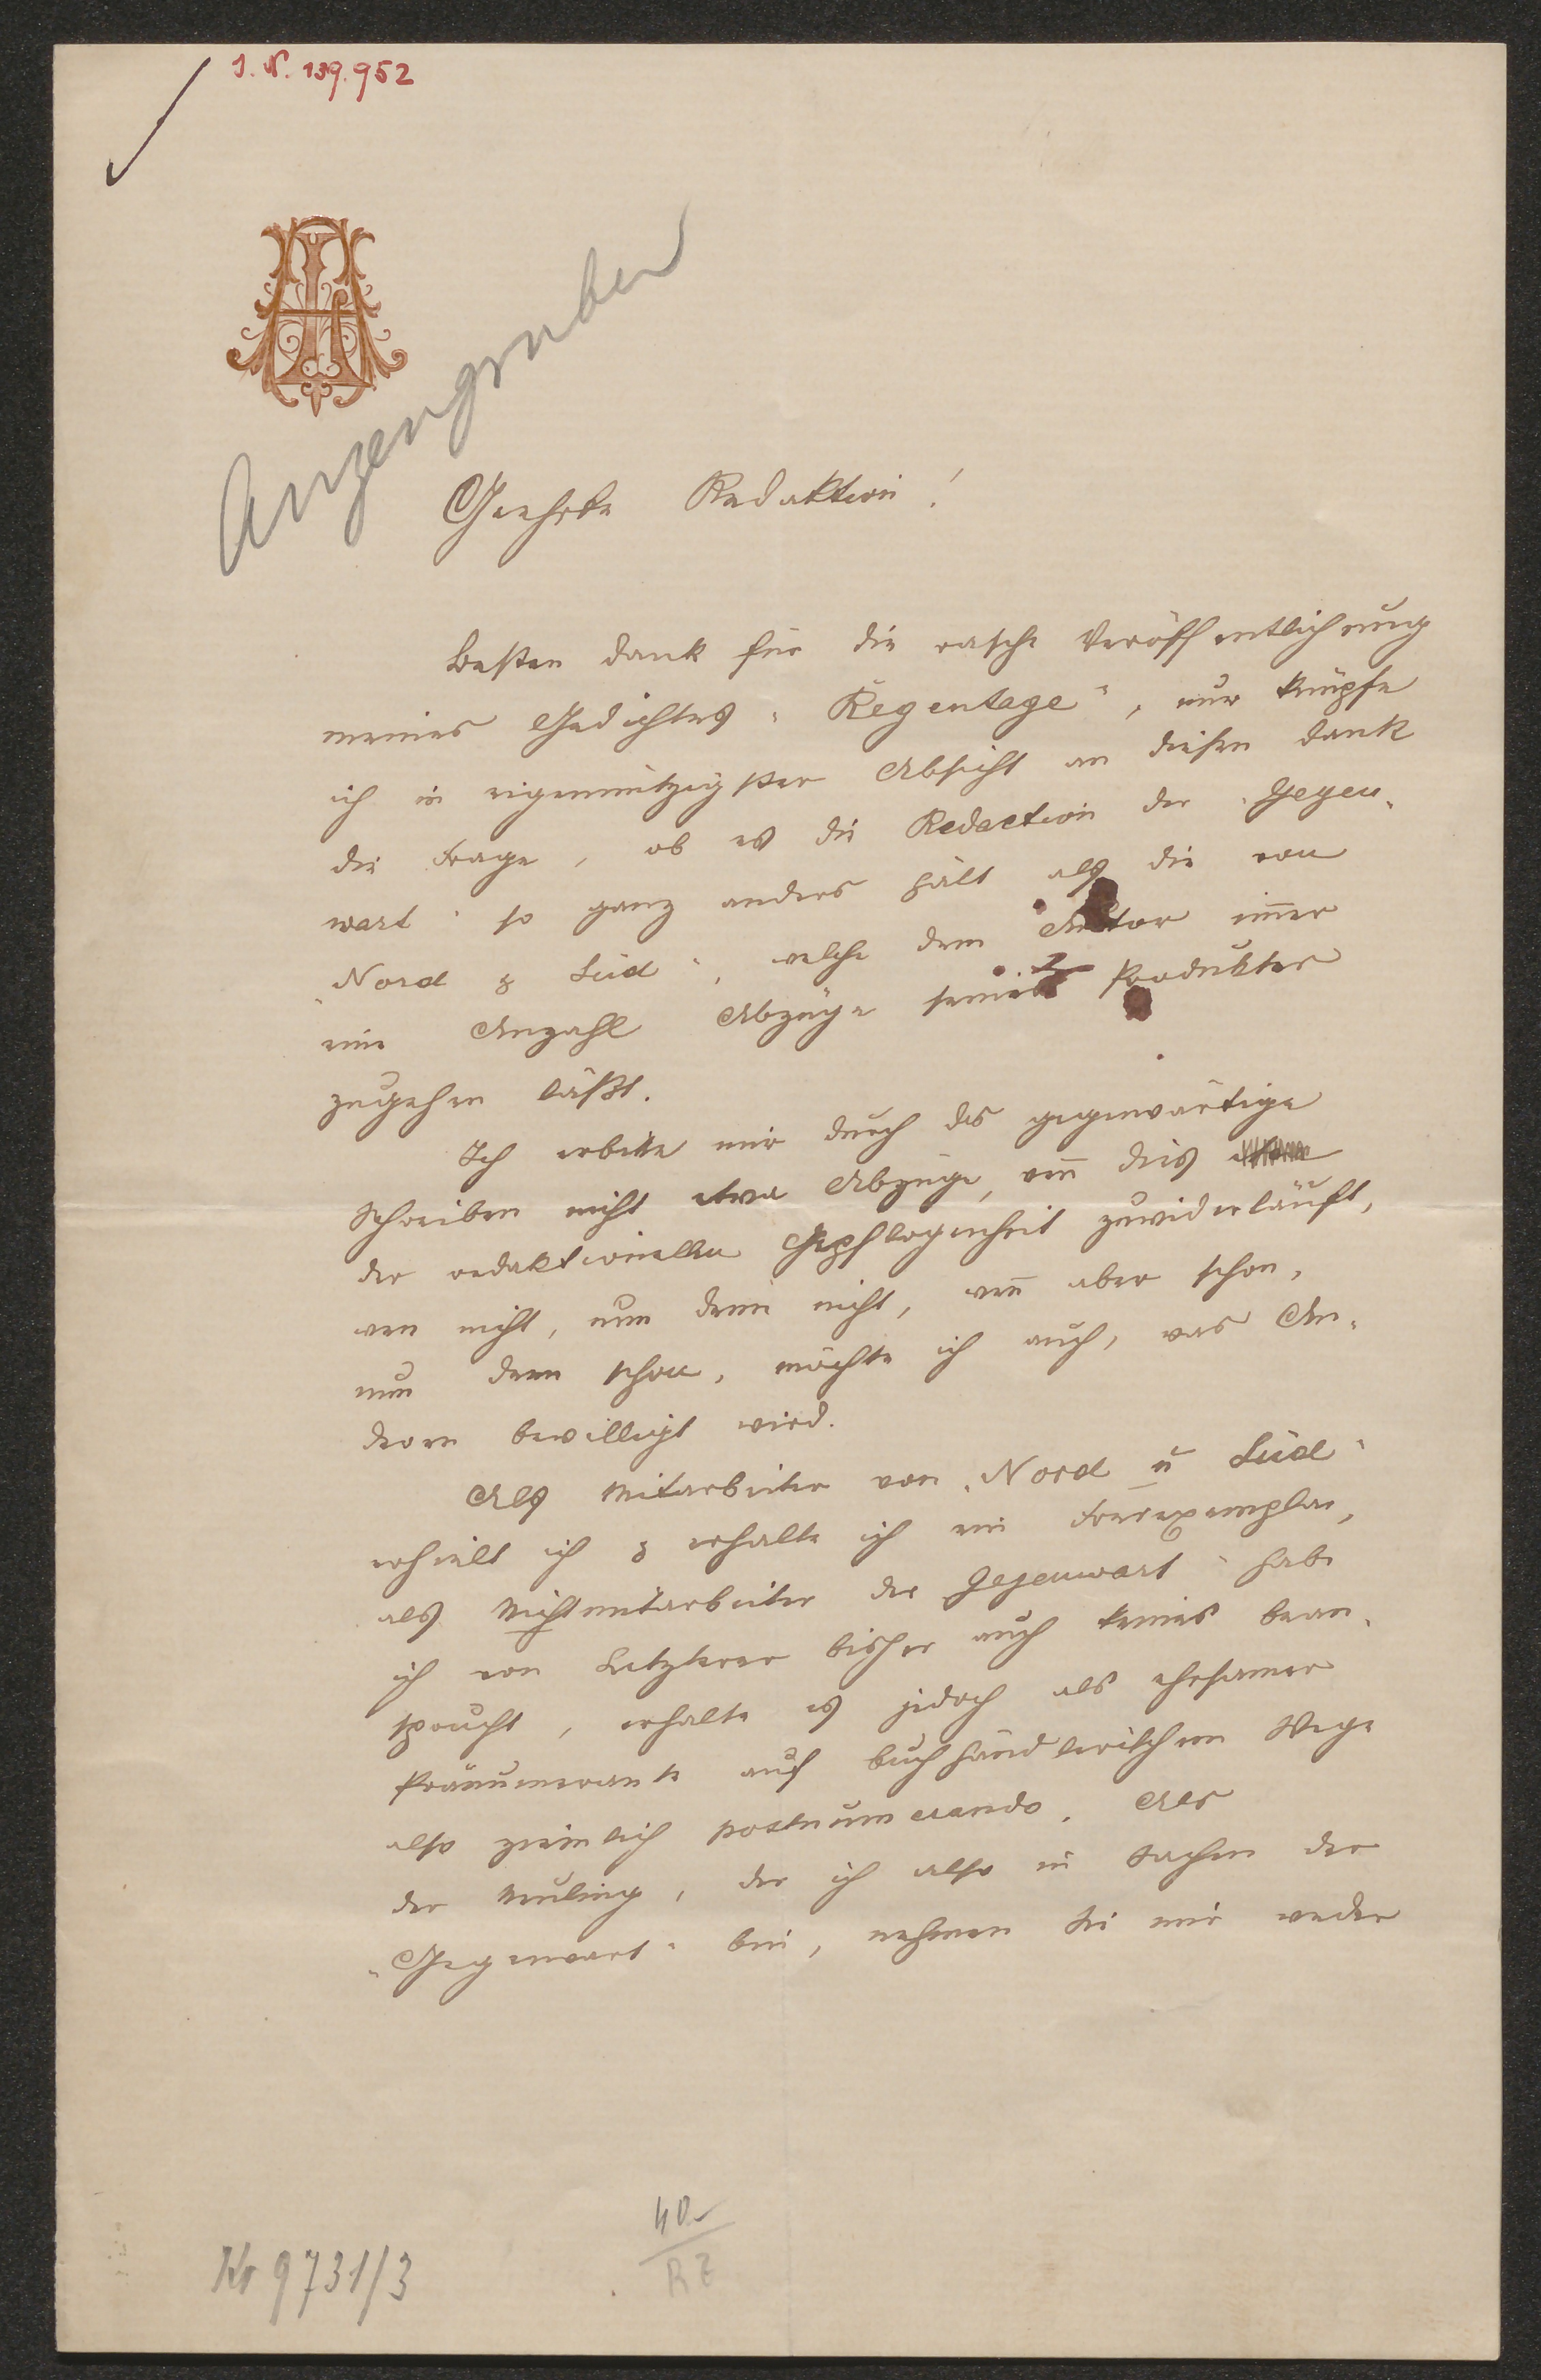 I. N. 139.952
Anzengruber
Geehrte Redaktion!
Besten Dank für die rasche Veröffentlichung
meines Gedichtes „Regentage“, nur knüpfe
ich in eigennützigster Absicht an diesen Dank
die Frage, ob es die Redaction der „Gegen-
wart“ so ganz anders hält als die von
„Nord & Süd“, welche dem Autor immer
eine Anzahl Abzüge seines Produktes
zugehen läßt.
Ich erbitte mir durch das gegenwärtige
Schreiben nicht etwa Abzüge, wenn dies
der redaktionellen Gepflogenheit zuwiderläuft,
wen nicht, nun denn nicht, wenn aber schon,
nun denn schon, möchte ich auch, was An-
dern bewilligt wird.
Als Mitarbeiter von „Nord u Süd“
erhielt ich & erhalte ich ein Freiexemplar,
als Nichtmitarbeiter der Gegenwart“ habe
ich von Letzterer bisher auch keines bean-
sprucht, erhalte es jedoch als ehrsamer
Pränumerante auf buchhändlerischem Wege
also ziemlich postnumerando. Als
der Neuling, der ich also in Sachen der
„Gegenwart“ bin, nehmen Sie mir weder
Kr 9731/3
40.-
RZ